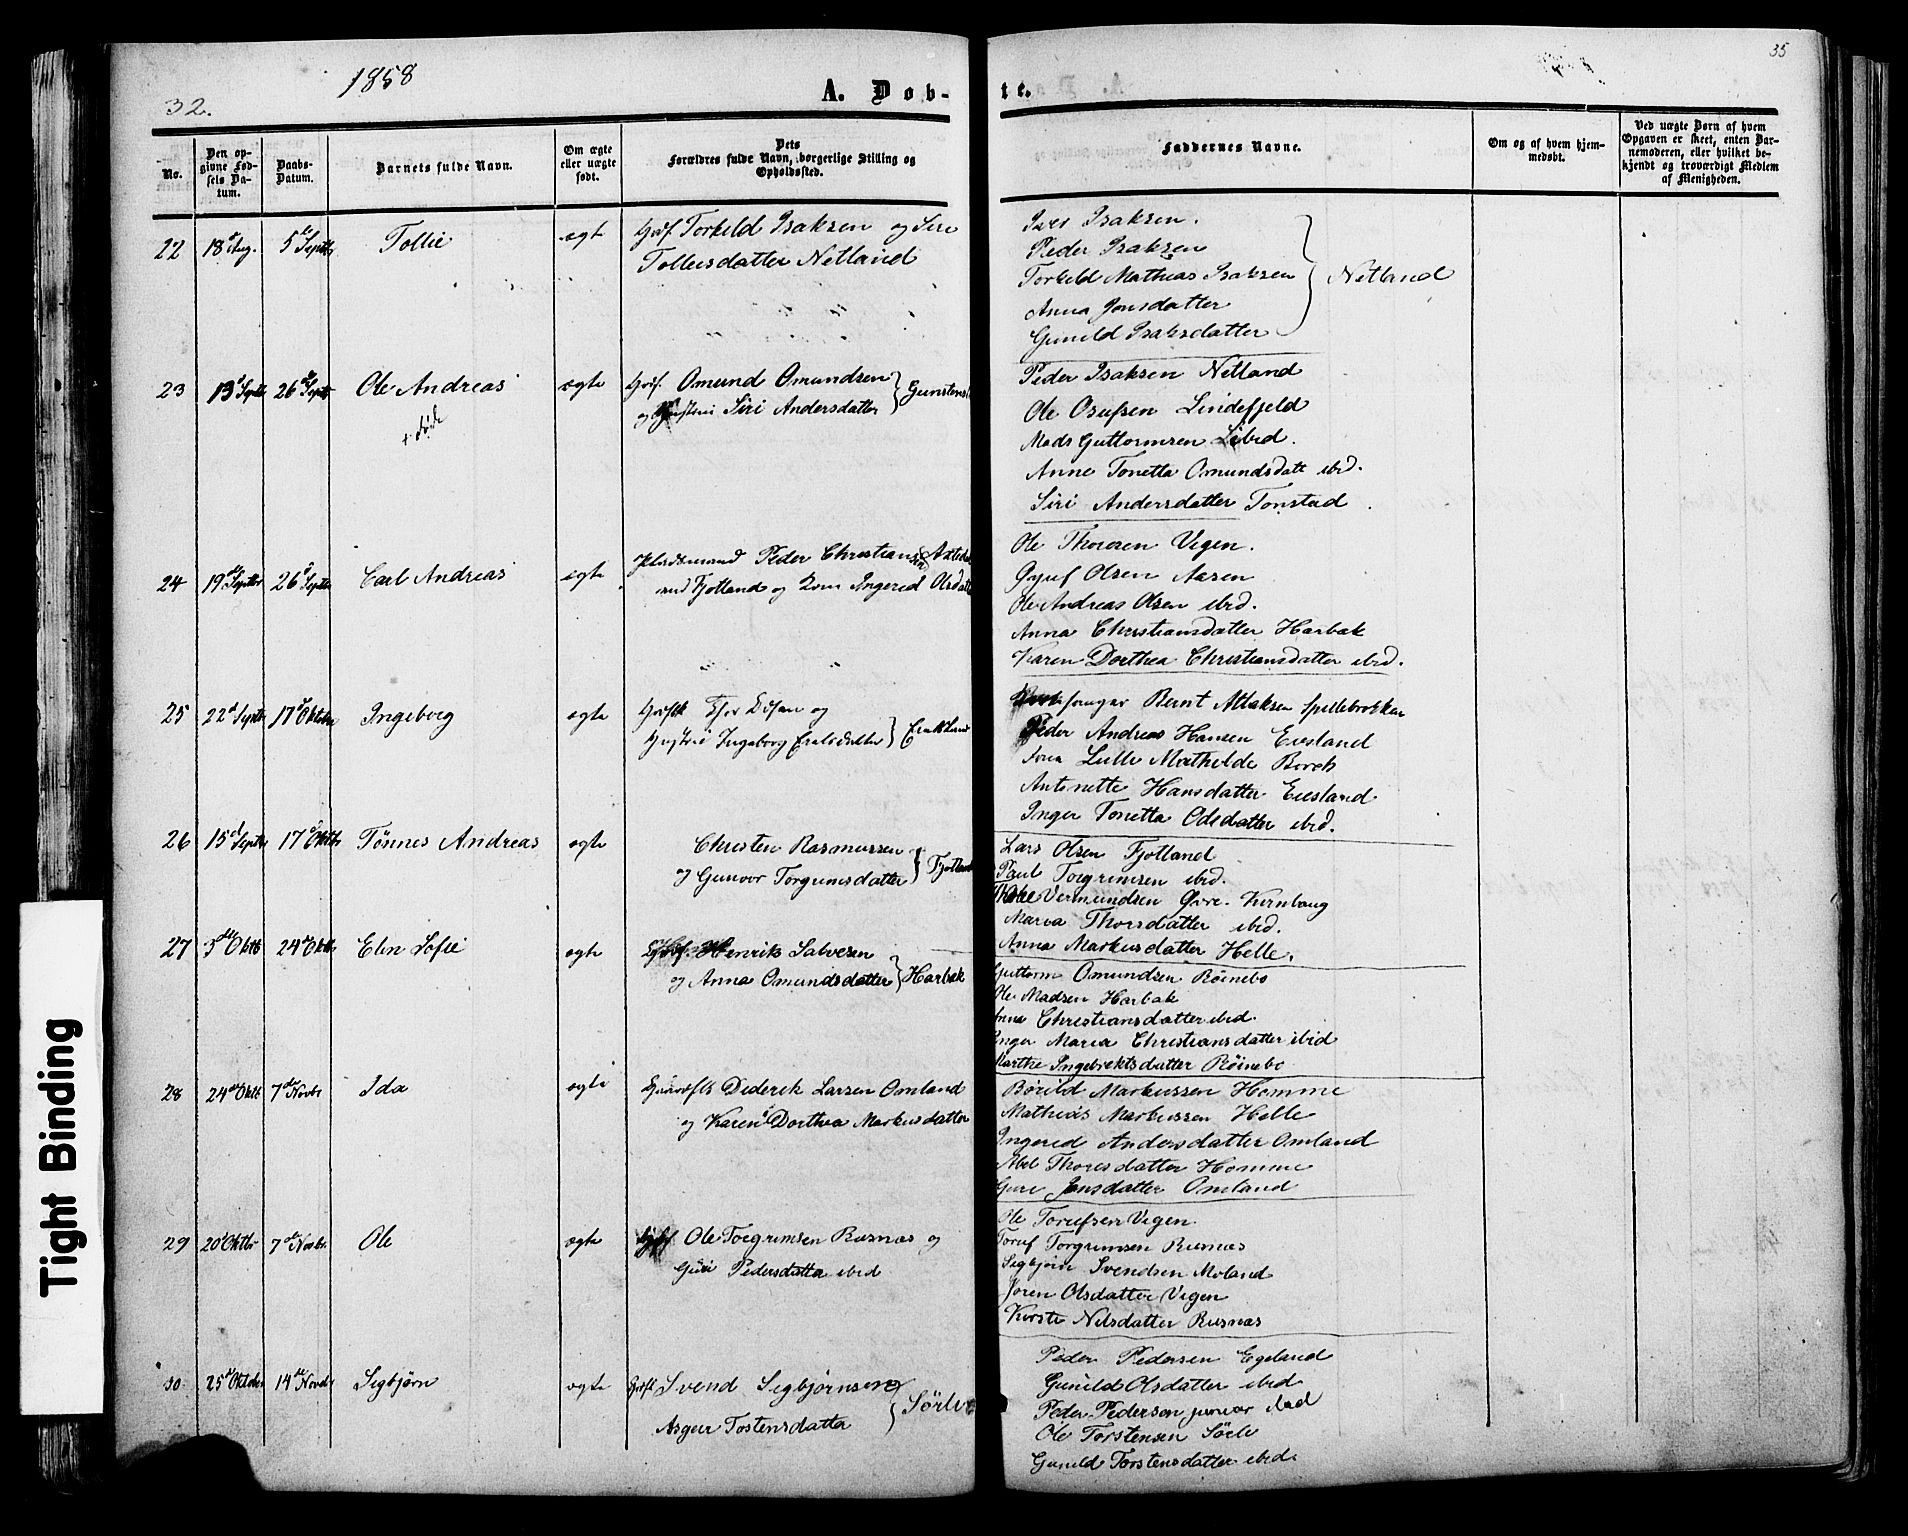 32.
1858
A. Døb-
te.
35
No.
Den op-
givne Fød-
sels Da-
tum.
Daabs-
Datum.
Barnets fulde Navn.
Om ægte
eller uægte
født.
Dets
Forældres fulde Navn, borgerlige Stilling og
Opholdssted.
Faddernes Navne.
Om og af hvem hjem-
medøbt.
Ved uægte Børn af hvem
Opgaven er skeet, enten Bar-
nemoderen, eller hvilket be-
kjendt og troværdigt Medlem
af Menigheden.
22 18 Aug. 5 Septbr Tollie ægte Torkild Isaksen og Siri
Tollesdatter Netland
Iver Isaksen.
Peder Isaksen
Torkild Mathias Isaksen Netland
Anna Jonsdatter
Gunild Isaksdatter
23 13 Septbr 26 Septbr Ole Andreas ægte Omund Omundsen
og Hustrue Siri Andersdatter
+ døde
Peder Isaksen Netland
Ole Osufsen Lindefjeld
Mads Guttormsen ibid.
Anne Tonetta Omundsdatt ibid.
Siri Andersdatter Tonstad
24 19 Septbr 26 Septbr Carl Andreas ægte Pladsmand Peder Christiansen
Fjotland og Kone Ingered
Ole Thorsen Vegen.
Olsen Aasen
Ole Andreas Olsen ibid.
Anna Christiansdatter Harbak
Karen Dorthea Christiansdatter ibid.
25 22 Septbr 17 Oktober Ingeborg ægte og
Hustrue Ingeborg
Bernt Atlaksen Spillebrokken
Peder Andreas Hansen Eiesland
Lulle Mathilde Borch
Antonette Hansdatter Eiesland
Inger Tonetta Odsdatter ibid.
26 15 Septbr 17 Oktbr Tønnes Andreas ægte Christen Rasmussen
og Gunvor Torgrimsdatter Fjotland
Lars Olsen Fjotland
Paul Torgrimsen ibid.
Vermundsen Øvre Kvinlaug
Maria Thorsdatter ibid.
Anna Markusdatter Helle.
27 3 Oktb 24 Oktbr Elen Sofie ægte Henrik Salvesen
og Anna Omundsdatter Harbak
Guttorm Omundsen Røinebo
Ole Madsen Harbak
Anna Christiansdatter ibid.
Inger Maria Christiansdatter ibid
Marthe Ingebrektsdatter Røinebo
28 24 Oktb 7 Novbr Ida ægte Diderik Larsen Omland
og Karen Dorthea Markusdatter
Børild Markussen Homme
Mathias Markussen Helle
Ingered Andersdatter Omland
Abel Thoresdatter Homme
Guri Jonsdatter Omland
29 20 Oktbr 7 Novbr. Ole ægte Ole Torgrimsen Risnæs og
Guri Pedersdatter ibid
Ole Torufsen Vegen.
Toruf Torgrimsen Risnæs
Sigbjørn Svendsen Moland
Joren Olsdatter Vegen
Kirste Nilsdatter Risnæs
30 25 Oktober 14 Novbr Sigbjørn ægte Svend Sigbjørnsen
Asgier Tostensdatter
Peder Pedersen Egeland
Gunild Olsdatter ibid
Peder Pedersen junior ibid
Ole Torstensen Sørli
Gunild Torstensdatter ibid.
Tight Binding